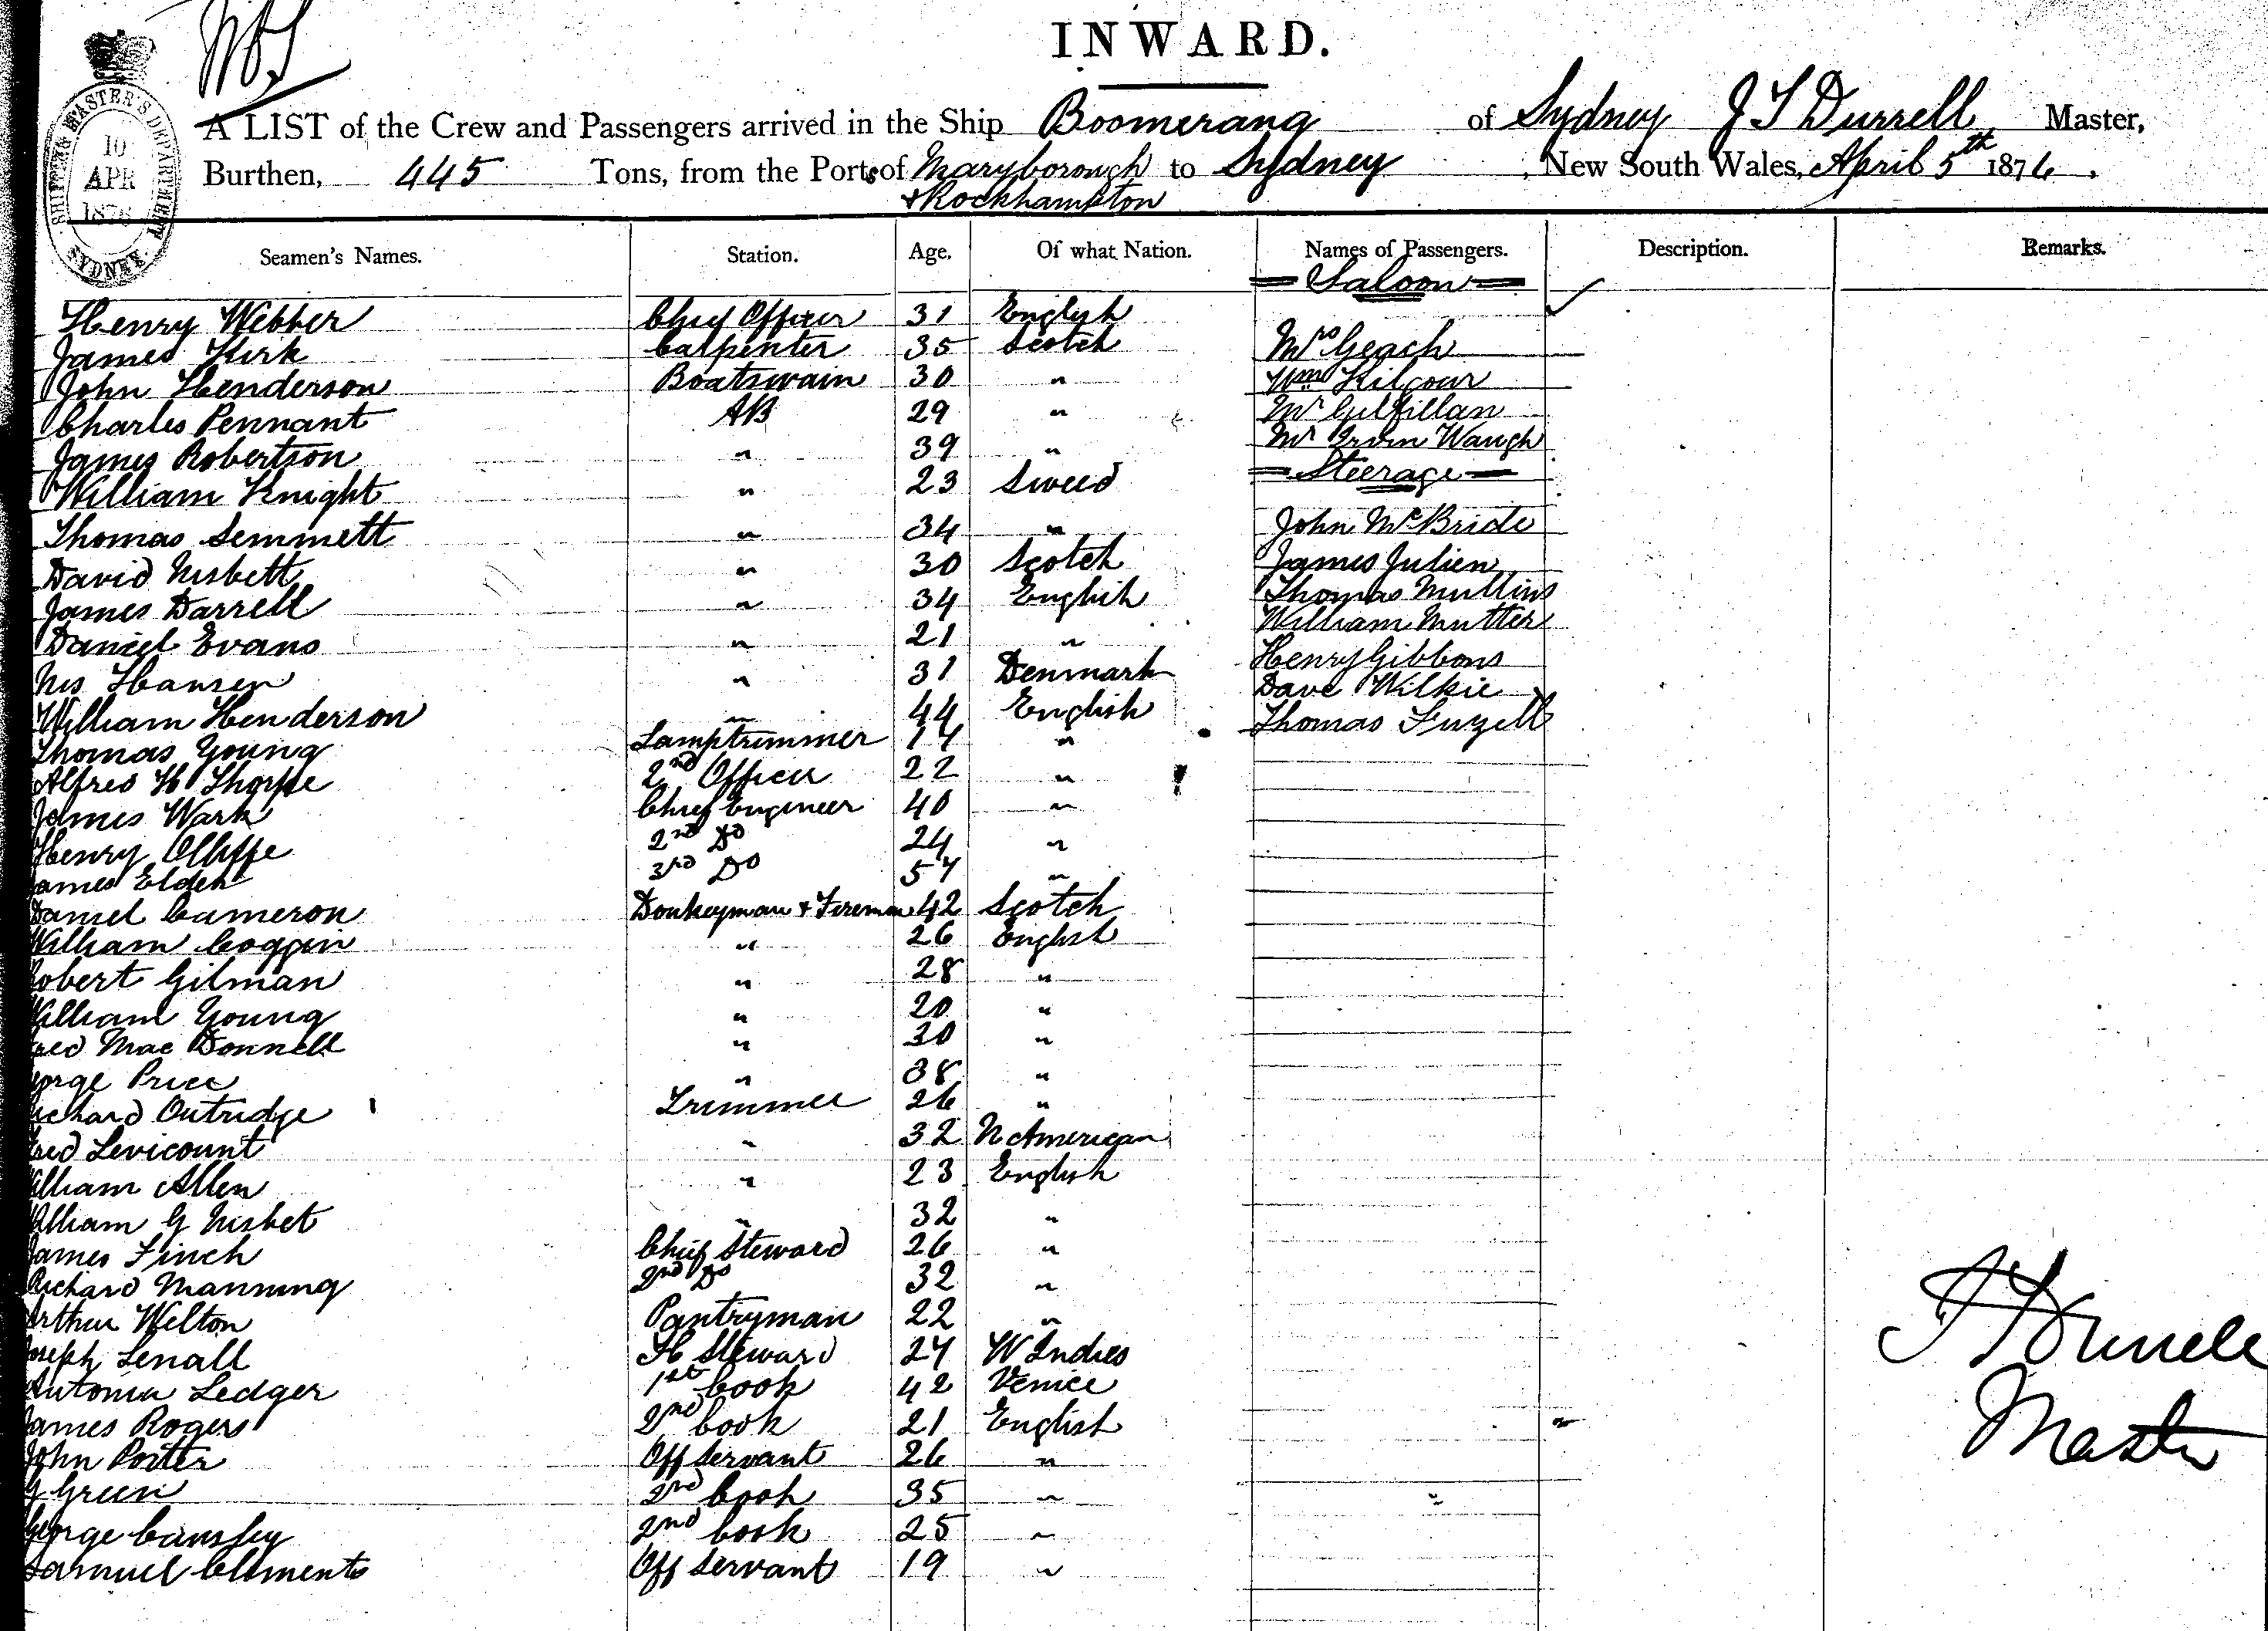 INWARD.
A LIST of the Crew and Passengers arrived in the Ship Boomerang of Sydney J S Durrell Master,
Burthen, 445 Tons, from the Ports of Maryborough to Sydney, New South Wales, April 5th 1876.
& Rockhampton
SHIPPING MASTER'S DEPARTMENT
10
APR
1876
SYDNEY
Seamen's Names. Station. Age. Of what Nation. Names of Passengers. Description. Remarks.
Saloon
Henry Webber Chief Officer 31 English
James Kirk Carpenter 35 Scotch Mrs Geach
John Henderson Boatswain 30 " Wm Kilgour
Charles Pennant AB 29 " Mr Gilfillan
James Robertson " 39 " Mr Irvin Waugh
William Knight " 23 Sweed Steerage
Thomas Semmett " 34 " John McBride
David Nisbett " 30 Scotch James Julien
James Darrell " 34 English Thomas Mullins
Daniel Evans " 21 " William Mutter
Nis Hansen " 31 Denmark Henry Gibbons
William Henderson " 44 English Dave Wilkie
Thomas Young Lamptrimmer 17 " Thomas
Alfred H Thorpe 2nd Officer 22 "
James Wark Chief Engineer 40 "
Henry Olliffe 2nd Do 24 "
James Elder 3rd Do 57 "
Daniel Cameron Donkeyman & Fireman 42 Scotch
William Coggin " 26 English
Robert Gilman " 28 "
William Young " 20 "
Mac Donnell " 30 "
George Price " 38 "
Richard Outridge Trimmer 26 "
Levicount " 32 N American
William Allen " 23 English
William G Nisbet " 32 "
James Finch Chief Steward 26 "
Richard Manning 2nd Do 32 "
Arthur Welton Pantryman 22 "
Joseph Lenall Steward 27 W Indies
Antonia Ledger 1st Cook 42 Venice
James Rogers 2nd Cook 21 English
John Porter Off Servant 26 "
G Green 2nd Cook 35 "
George Cansley 2nd Cook 25 "
Samuel Clements Off Servant 19 "
J S Durrell
Master